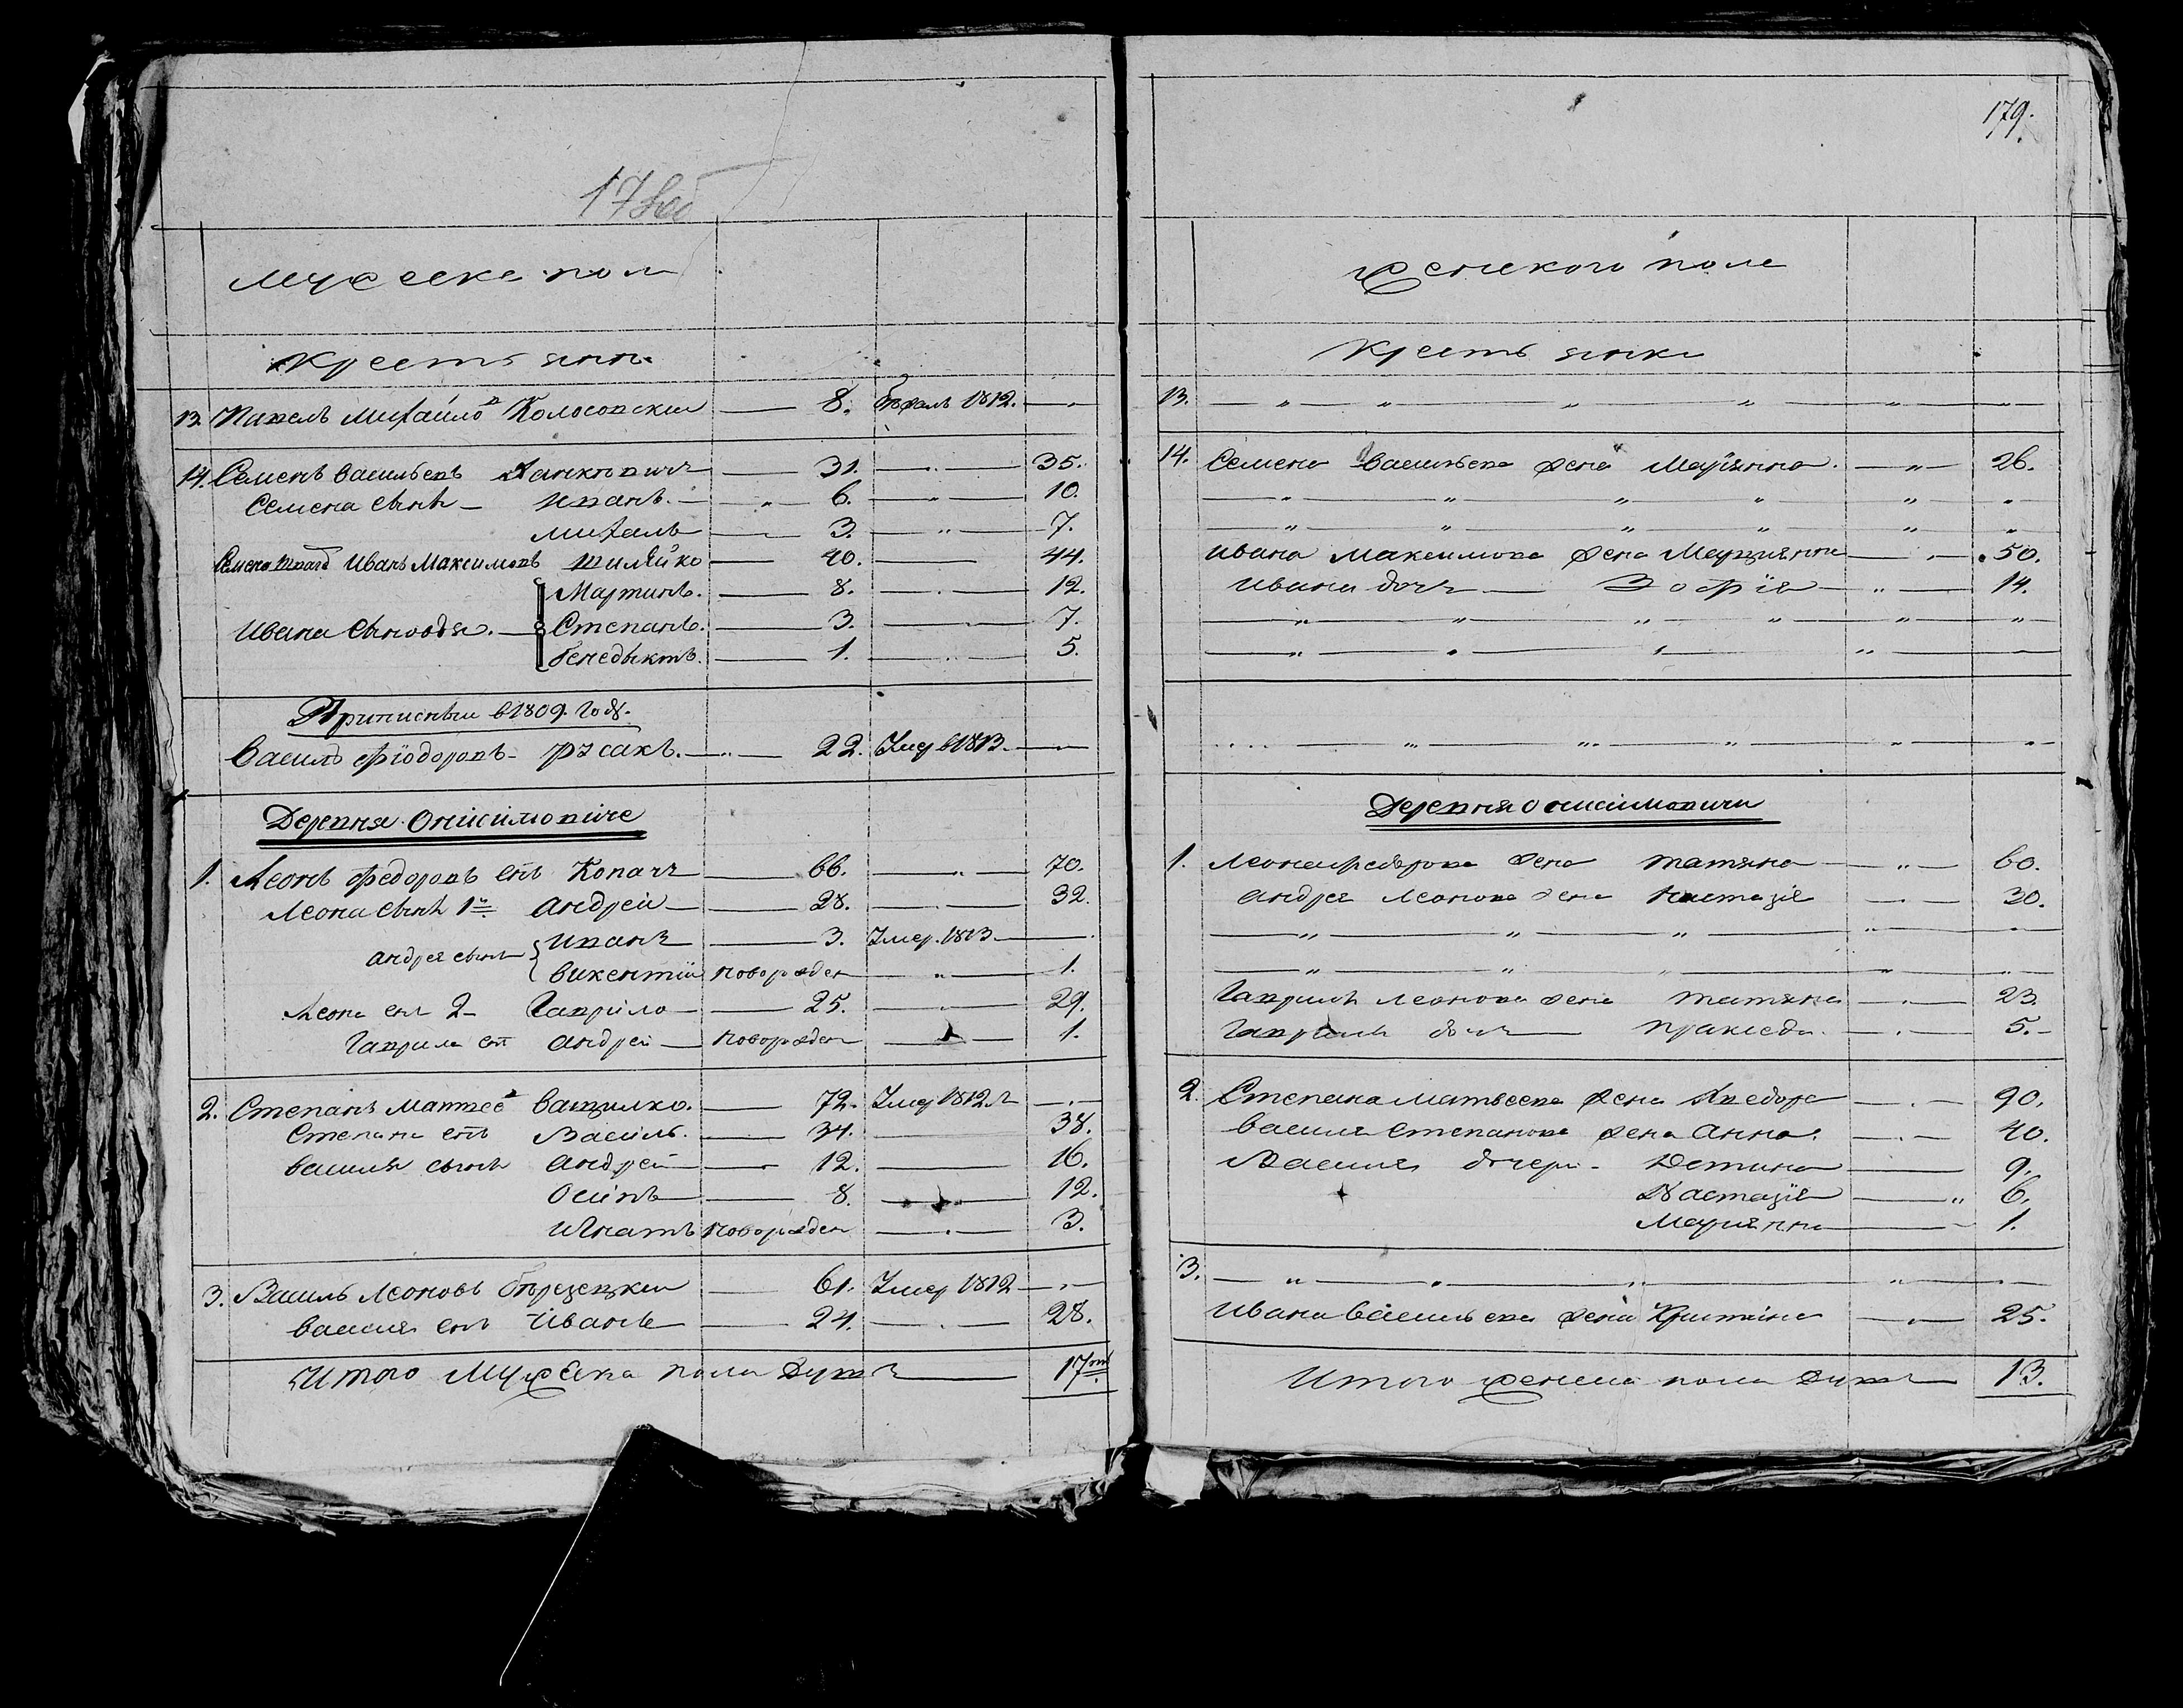 178об
Мужеска пол
Крестьянъ
13. Павелъ Михайлов Колосовски 8. 1812.
14. Семенъ Васильевъ 31. 35.
Семена сынъ Иванъ. 6. 10.
Михалъ 3. 7.
Иванъ Максимовъ Шиляйко 40. 44.
Мартинъ. 8. 12.
Ивана сыновья. Степанъ. 3. 7.
Бенедыктъ. 1. 5.
Приписныи в 1809. году.
Василь Фіодоровъ 22. Умер в 1813
Деревня Онисимовиче
1. Леонъ Федоровъ снъ Копачъ 66. 70.
Леона сынъ 1й Андрей 28. 32.
Андрея сыны Иванъ 3. Умер. 1813
Викентій новорожден 1.
Леона снъ 2 Гаврило 25. 29.
Гаврила снъ Андрей новорожден 1.
2. Степанъ Матвеев Вашилко. 72. Умер 1812 г
Степана снъ Василь. 34. 38.
Василя сынъ Андрей 12. 16.
Осипъ 8. 12.
Игнатъ новорожден 3.
3. Василь Леоновъ 61. Умер 1812
Василя снъ Иванъ 24. 28.
Итого Мужеска пола душъ 17
179.
Женского поле
Крестьянки
13.
14. Семена Васильева жена Марянна. 26.
Ивана Максимова жена Марцянна 50.
Ивана доч Зофія 14.
Деревня Онисимовичи
1. Леона Федорова жена Татяна 60.
Андрея Леонова жена Настазія 30.
Гаврилы Леонова жена Татяна 23.
Гаврилы дочъ Праксєда. 5.
2. Степана Матвеева жена 90.
Василя Степанова жена Анна. 40.
Василя дочери 9.
Настазія 6.
Марянна 1.
3.
Ивана Васильева жена Христина 25.
Итого женска пола душъ 13.